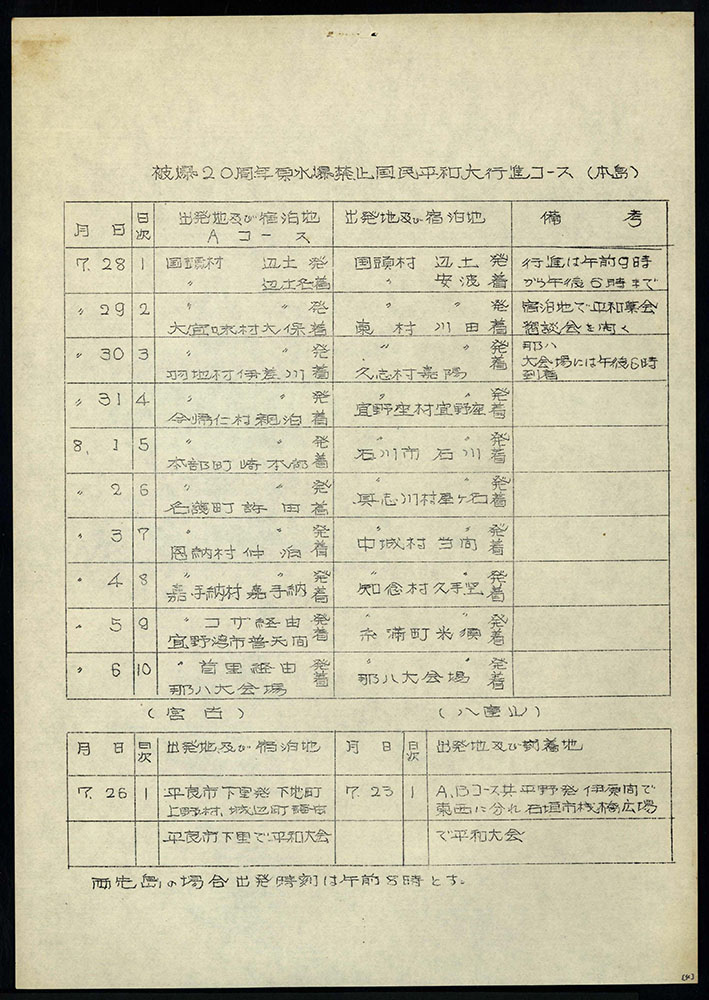 被爆20周年原水爆禁止国民平和大行進コース（本島）
月 日 日次 出発地及び宿泊地 Aコース 出発地及び宿泊地 備 考
7. 28 1 国頭村 辺土 発 国頭村 辺土 発 行進は午前9時
〃 辺土名着 〃 安波 着 から午後6時まで
〃 29 2 〃 〃 発 〃 〃 発 宿泊地で平和集会
大宜味村大保着 東 村 川田 着 懇談会を開く
〃 30 3 〃 〃 発 〃 〃 発 那ハ
羽地村伊差川 着 久志村嘉陽 着 大会場には午後6時
到着
〃 31 4 〃 〃 発 〃 〃 発
今帰仁村親泊 着 宜野座村宜野座 着
8. 1 5 〃 〃 発 〃 〃 発
本部町崎本部 着 石川市 石川 着
〃 2 6 〃 〃 発 〃 〃 発
名護町許田 着 具志川村屋ヶ名 着
〃 3 7 〃 〃 発 〃 発
恩納村仲泊 着 中城村 当間 着
〃 4 8 〃 〃 発 〃 〃 発
嘉手納村嘉手納 着 知念村久手堅 着
〃 5 9 〃 コザ経由 発 〃 〃 発
宜野湾市普天間 着 糸満町米須 着
〃 6 10 〃 首里経由 発 〃 発
那ハ大会場 着 那ハ大会場 着
（宮古） （八重山）
月 日 日次 出発地及び宿泊地 月 日 日次 出発地及び到着地
7. 26 1 平良市下里発 下地町 7. 23 1 A,Bコース共平野発伊原間で
上野村、城辺町 東西に分れ石垣市桟橋広場
平良市下里で平和大会 で平和大会
両先島の場合出発時刻は午前8時とす。